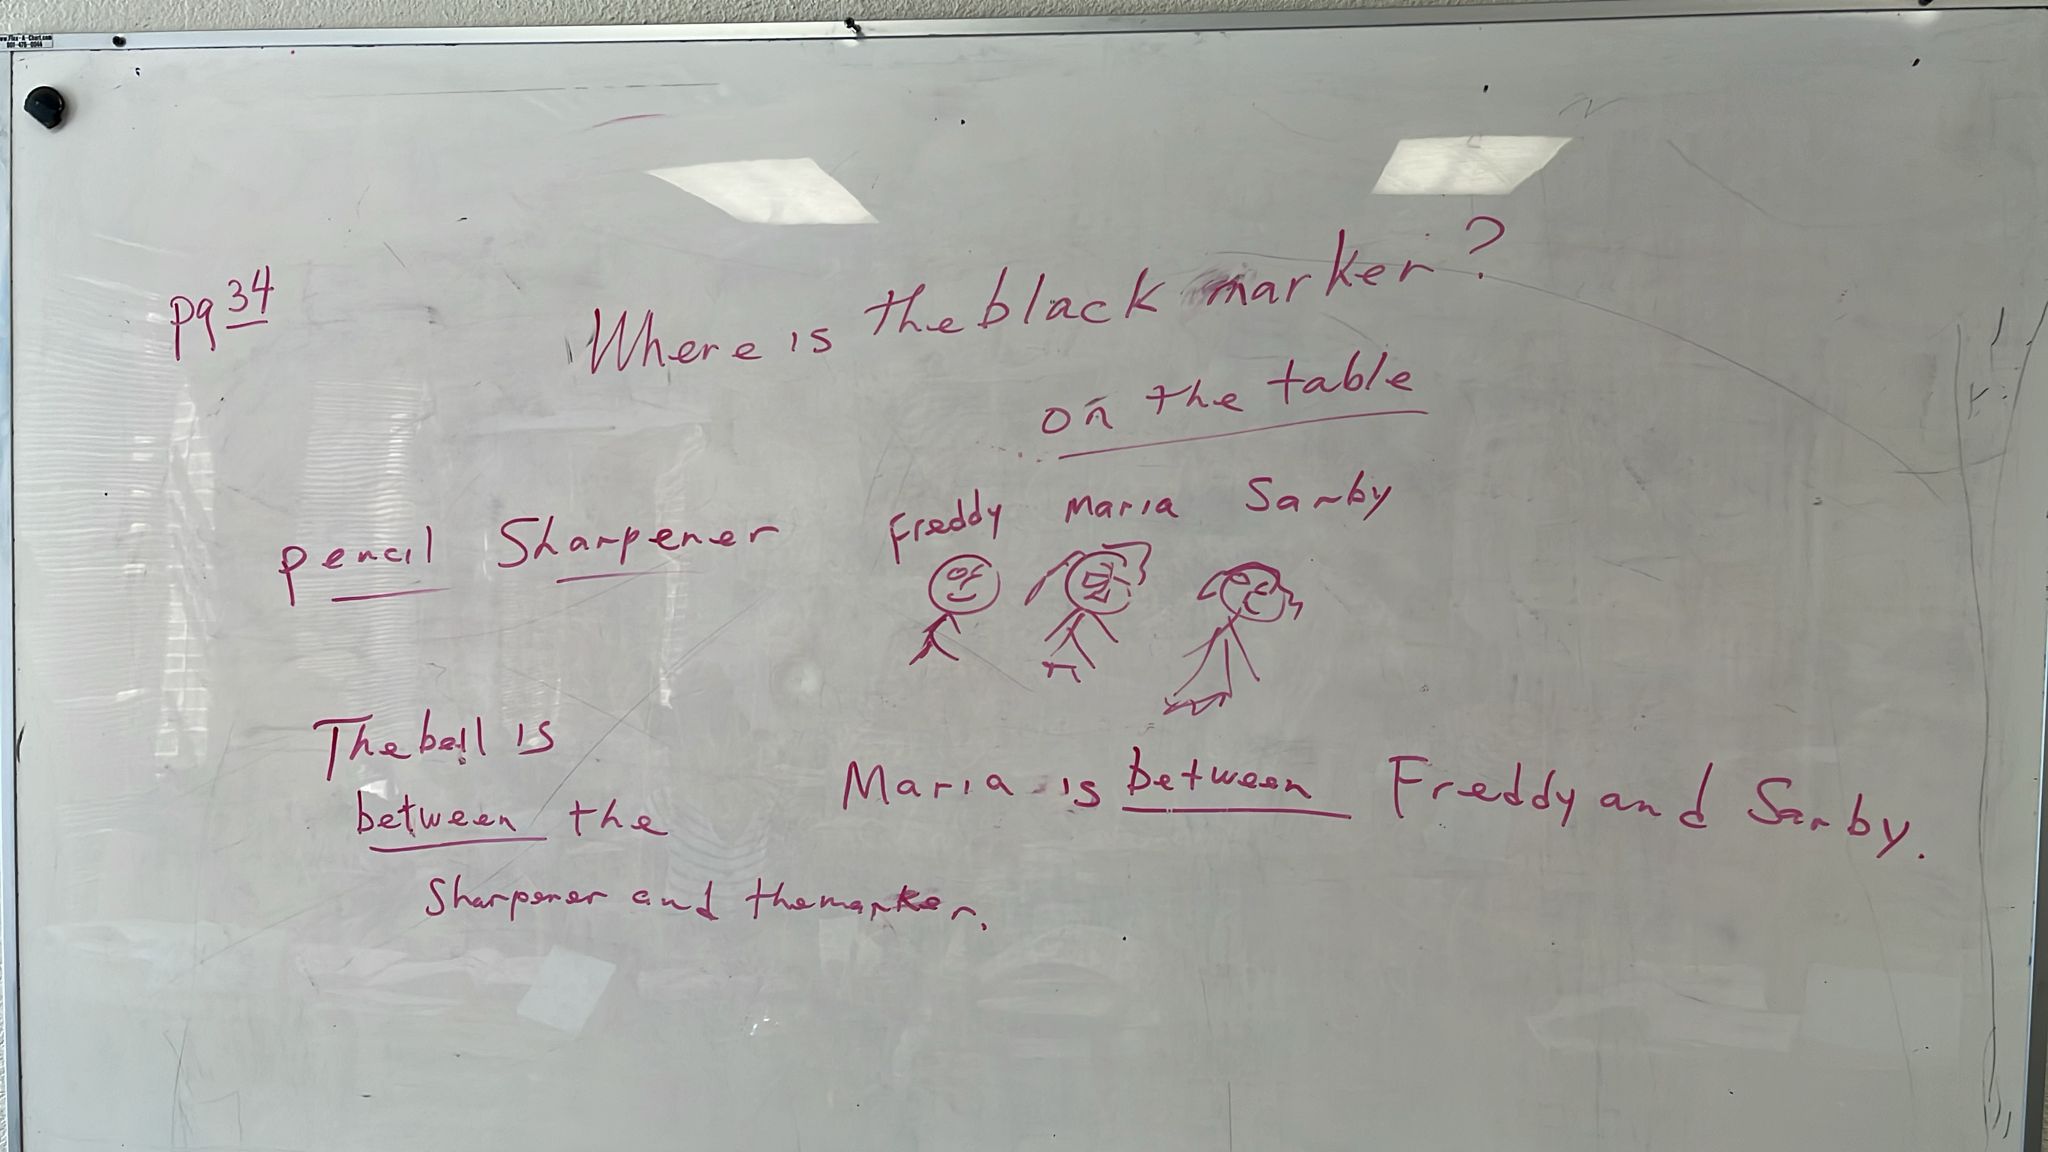 www.Flex-A-Chart.com
pg 34
Where is the black marker?
on the table
pencil Sharpener
Freddy Maria Sanby
The ball is
between the
Sharpener and the marker.
Maria is between Freddy and Sanby.